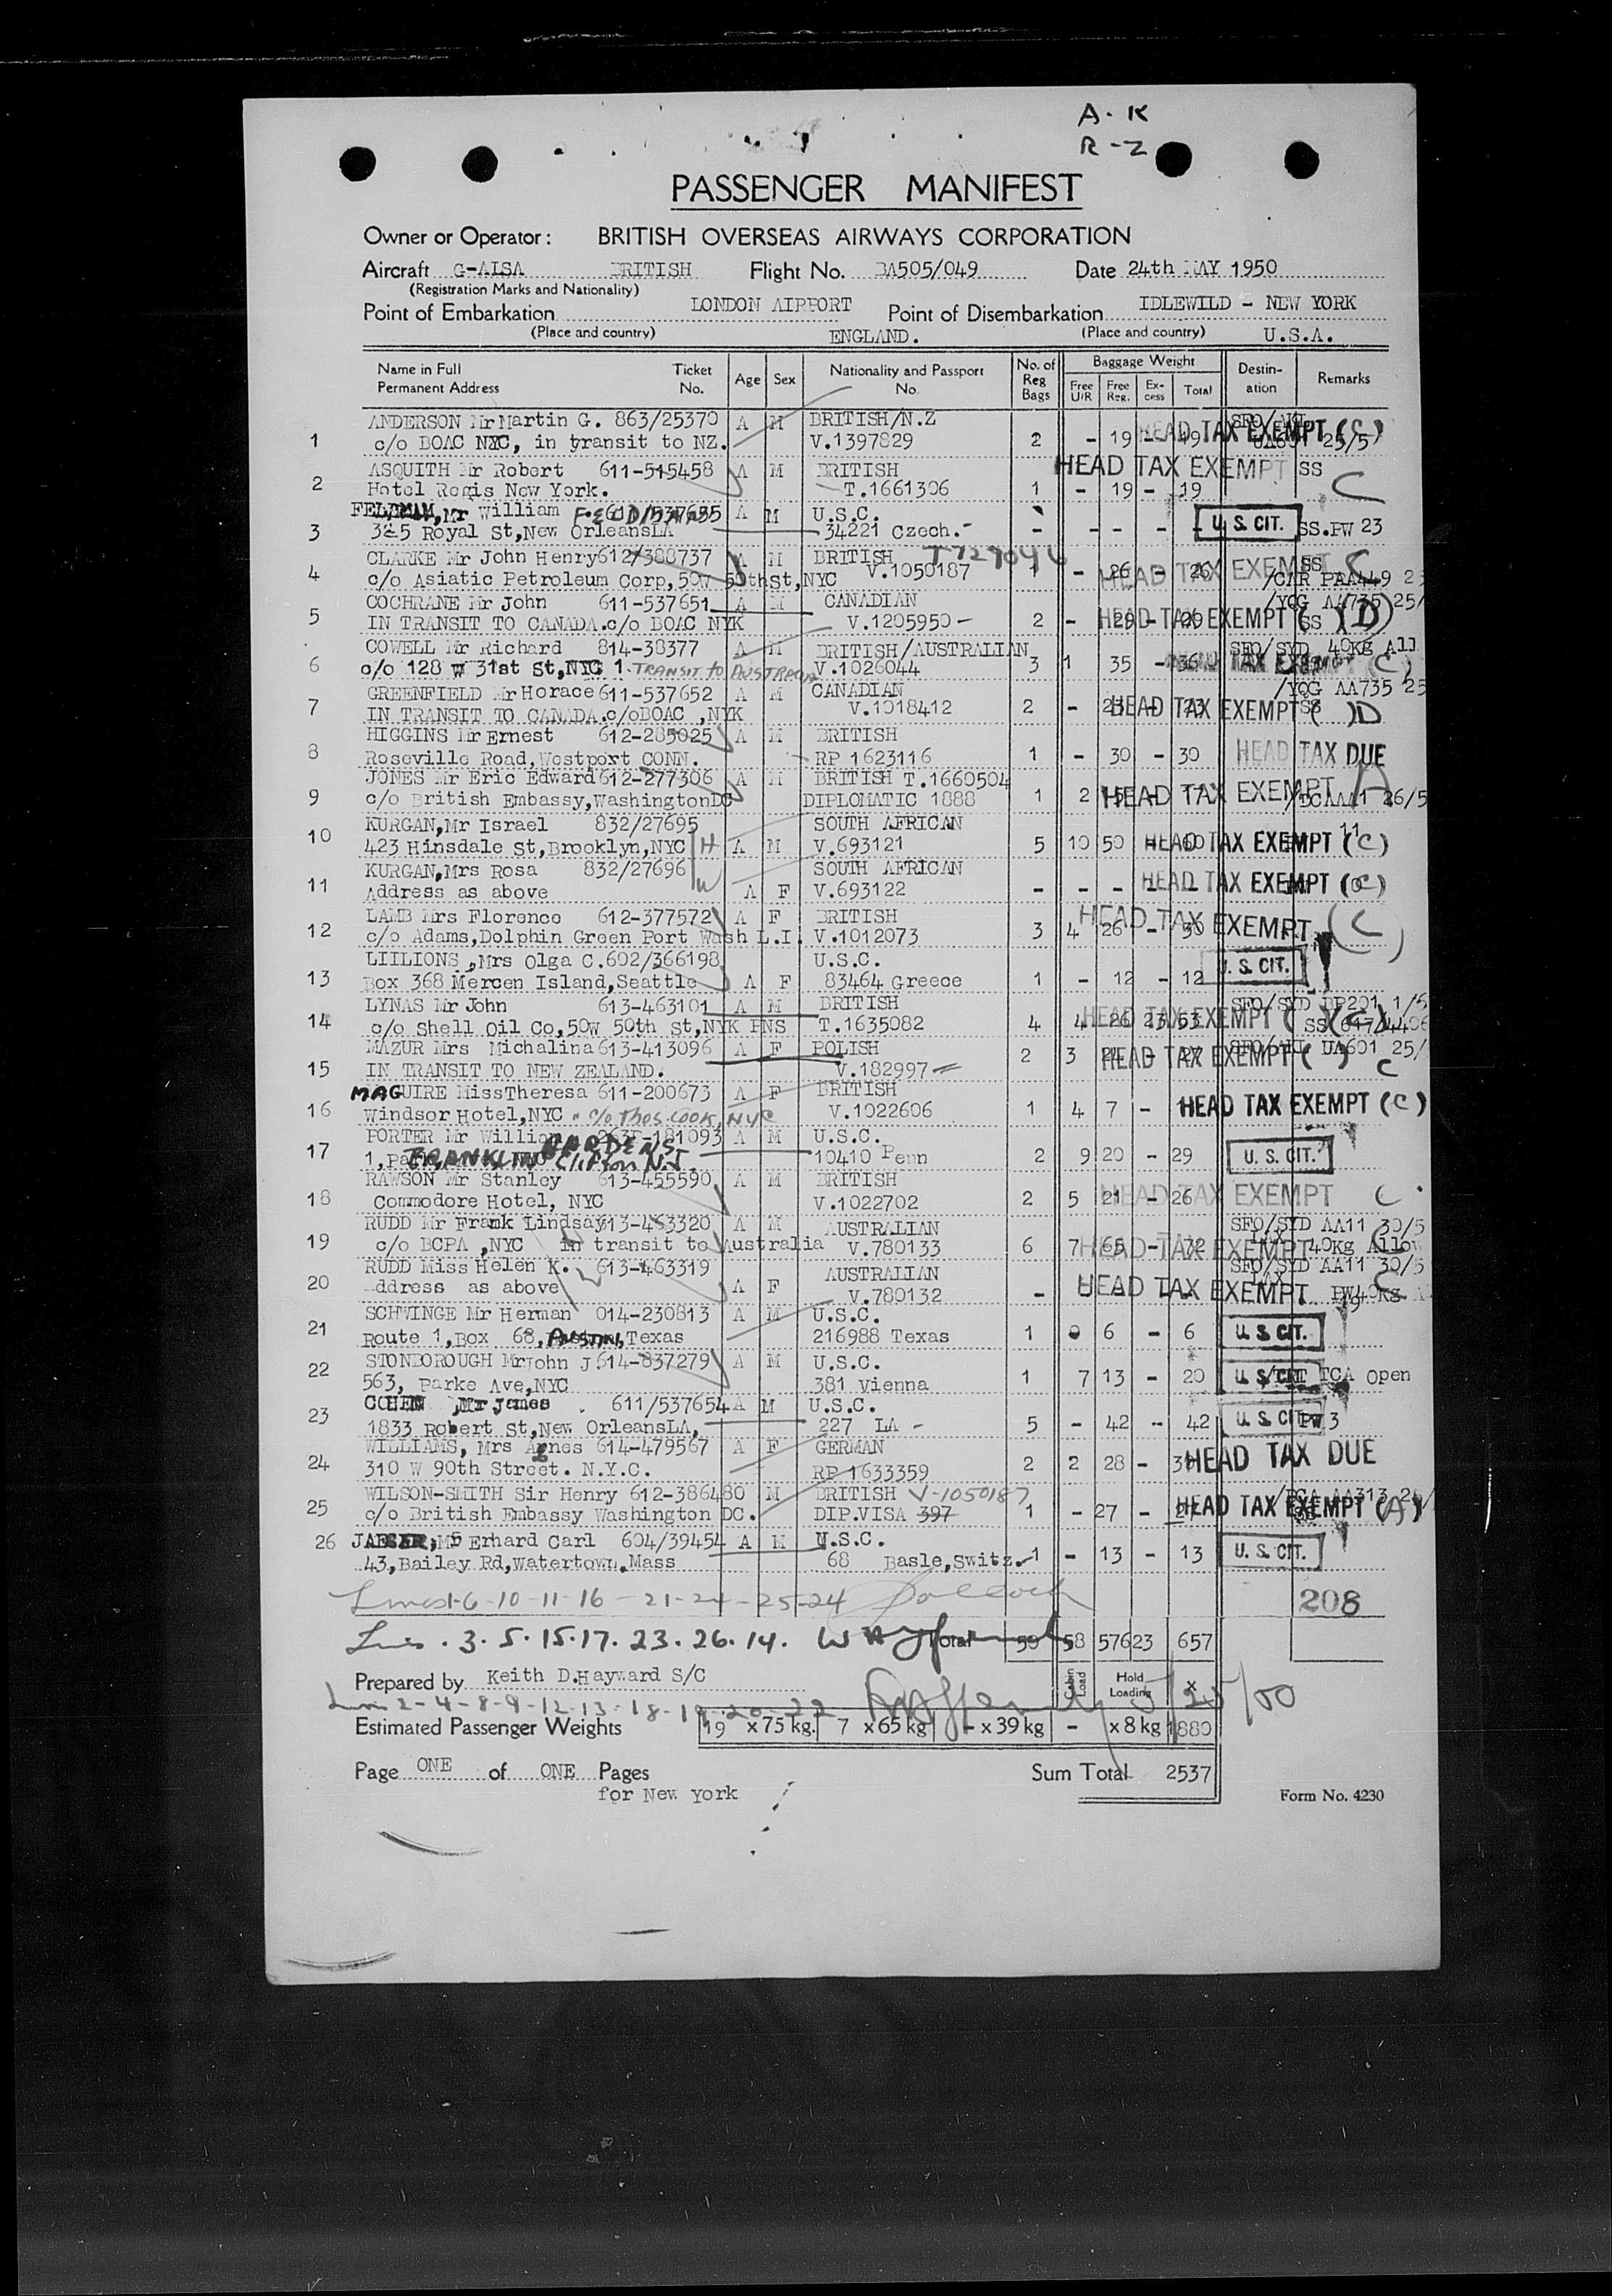 A. K
R-Z
PASSENGER MANIFEST
Owner or Operator: BRITISH OVERSEAS AIRWAYS CORPORATION
Aircraft G-ALSA BRITISH Flight No. BA505/049 Date 24th MAY 1950
(Registration Marks and Nationality)
Point of Embarkation LONDON AIRPORT Point of Disembarkation IDLEWILD - NEW YORK
(Place and country) ENGLAND. (Place and country) U.S.A.
Name in Full Permanent Address Ticket No. Age Sex Nationality and Passport No. No. of Reg Bags Baggage Weight Free U/R Free Reg. Ex-cess Total Destin-ation Remarks
ANDERSON Mr Martin G. 863/25370 A M BRITISH/N.Z
1 c/o BOAC NYC, in transit to NZ. V.1397829 2 - 19 - 19 HEAD TAX EXEMPT (C) 25/5
ASQUITH Mr Robert 611-515458 A M BRITISH HEAD TAX EXEMPT SS
2 Hotel Regis New York. T.1661306 1 - 19 - 19 C
FELDMAN, Mr William A M U.S.C.
3 325 Royal St, New OrleansLA 34221 Czech. - - - - - U. S. CIT. SS.PW 23
CLARKE Mr John Henry 612/388737 A M BRITISH
4 c/o Asiatic Petroleum Corp, 50W 50thSt, NYC V.1050187 1 - 26 - 26 HEAD TAX EXEMPT C SS /CAR PAA449
COCHRANE Mr John 611-537651 A M CANADIAN /YQG AA735 25/
5 IN TRANSIT TO CANADA.c/o BOAC NYK V.1205950 2 - 29 - 29 HEAD TAX EXEMPT (D) SS
COWELL Mr Richard 814-38377 A M BRITISH/AUSTRALIAN SFO/SYD 40KG All
6 c/o 128 W 31st St, NYC 1. TRANSIT to AUSTRALIA V.1026044 3 1 35 - 36 HEAD TAX EXEMPT (C)
GREENFIELD Mr Horace 611-537652 A M CANADIAN /YQG AA735 25
7 IN TRANSIT TO CANADA.c/oBOAC ,NYK V.1018412 2 - 23 - 23 HEAD TAX EXEMPT ( )D SS
HIGGINS Mr Ernest 612-285025 A M BRITISH
8 Roseville Road, Westport CONN. RP 1623116 1 - 30 - 30 HEAD TAX DUE
JONES Mr Eric Edward 612-277306 A M BRITISH T.1660504
9 c/o British Embassy, WashingtonDC DIPLOMATIC 1888 1 2 HEAD TAX EXEMPT A 26/5
KURGAN, Mr Israel 832/27695 SOUTH AFRICAN
10 423 Hinsdale St, Brooklyn, NYC H A M V.693121 5 10 50 - 60 HEAD TAX EXEMPT (C)
KURGAN, Mrs Rosa 832/27696 SOUTH AFRICAN
11 Address as above W A F V.693122 - - - HEAD TAX EXEMPT (C)
LAMB Mrs Florence 612-377572 A F BRITISH
12 c/o Adams, Dolphin Green Port Wash L.I. V.1012073 3 4 26 - 30 HEAD TAX EXEMPT (C)
LIILIONS, Mrs Olga C. 602/366198 U.S.C.
13 Box 368 Mercen Island, Seattle A F 83464 Greece 1 - 12 - 12 U. S. CIT.
LYNAS Mr John 613-463101 A M BRITISH SFO/SYD BP201 1/5
14 c/o Shell Oil Co, 50W 50th St, NYK PNS T.1635082 4 4 26 23 53 HEAD TAX EXEMPT (C)
MAZUR Mrs Michalina 613-413096 A F POLISH UA601 25/
15 IN TRANSIT TO NEW ZEALAND. V.182997 2 3 24 - 27 HEAD TAX EXEMPT ( ) C
MAGUIRE MissTheresa 611-200673 A F BRITISH
16 Windsor Hotel, NYC c/o Thos. Cook, NYC V.1022606 1 4 7 - HEAD TAX EXEMPT (C)
PORTER Mr William A M U.S.C.
17 FRANKLIN GARDENS Clifton N.J. 10410 Penn 2 9 20 - 29 U. S. CIT.
RAWSON Mr Stanley 613-455590 A M BRITISH
18 Commodore Hotel, NYC V.1022702 2 5 21 - 26 HEAD TAX EXEMPT C
RUDD Mr Frank Lindsay 613-463320 A M AUSTRALIAN SFO/SYD AA11 30/5
19 c/o BCPA ,NYC in transit to Australia V.780133 6 7 65 - 72 HEAD TAX EXEMPT 40Kg Allow
RUDD Miss Helen K. 613-463319 AUSTRALIAN SFO/SYD AA11 30/5
20 ddress as above A F V.780132 - HEAD TAX EXEMPT
SCHWINGE Mr Herman 014-230813 A M U.S.C.
21 Route 1, Box 68, AUSTIN, Texas 216988 Texas 1 0 6 - 6 U. S. CIT.
STONBOROUGH MrJohn J 614-837279 A M U.S.C.
22 563, Parke Ave, NYC 381 Vienna 1 7 13 - 20 U. S. CIT TCA Open
COHEN ,Mr James 611/537654 A M U.S.C.
23 1833 Robert St, New OrleansLA, 227 LA - 5 - 42 -- 42 U. S. CIT. PW 3
WILLIAMS, Mrs Agnes 614-479567 A F GERMAN
24 310 W 90th Street. N.Y.C. RP 1633359 2 2 28 - 30 HEAD TAX DUE
WILSON-SMITH Sir Henry 612-386480 M BRITISH V-1050187
25 c/o British Embassy Washington DC. DIP.VISA 397 1 - 27 - 27 HEAD TAX EXEMPT (A)
26 JAEGER, Mr Erhard Carl 604/39454 A M U.S.C.
43, Bailey Rd, Watertown, Mass 68 Basle, Switz. 1 - 13 - 13 U. S. CIT.
208
Lines . 3. 5. 15. 17. 23. 26. 14. Total 59 58 576 23 657
Prepared by Keith D.Hayward S/C Cabin Load Hold Loading x
2-4-8-9-12-13-18-19-20-22
Estimated Passenger Weights 19 x 75 kg. 7 x 65 kg - x 39 kg - x 8 kg 1880
Page ONE of ONE Pages Sum Total 2537
for New York Form No. 4230